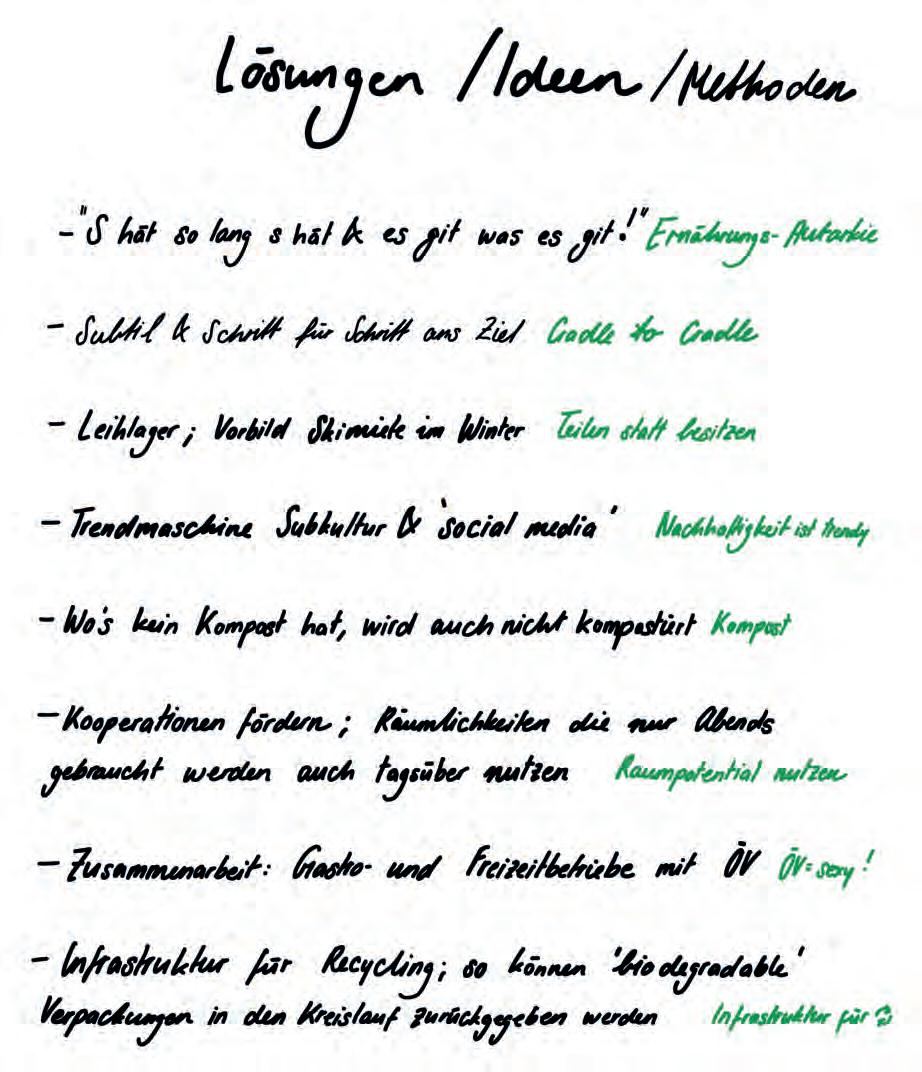 Lösungen / Ideen / Methoden
- "S hät so lang s hät & es git was es git!" Ernährungs-Autarkie
- Subtil & Schritt für Schritt ans Ziel Cradle to Cradle
- Leihlager; Vorbild Skimiete im Winter Teilen statt besitzen
- Trendmaschine Subkultur & 'social media' Nachhaltigkeit ist trendy
- Wo's kein Kompost hat, wird auch nicht kompostiert Kompost
- Kooperationen fördern; Räumlichkeiten die nur Abends
gebraucht werden auch tagsüber nutzen Raumpotential nutzen
- Zusammenarbeit: Gastro- und Freizeitbetriebe mit ÖV ÖV=sexy!
- Infrastruktur für Recycling; so können 'biodegradable'
Verpackungen in den Kreislauf zurückgegeben werden Infrastruktur für